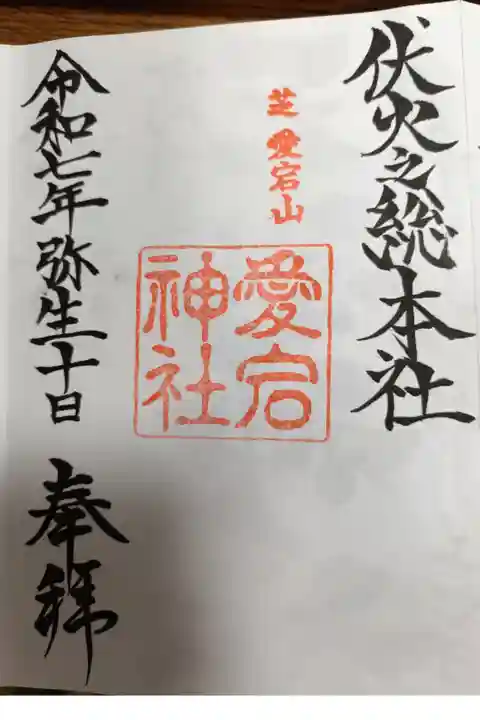 伏火之総本社
芝 愛宕山
愛宕
神社
令和七年弥生十日
奉拝